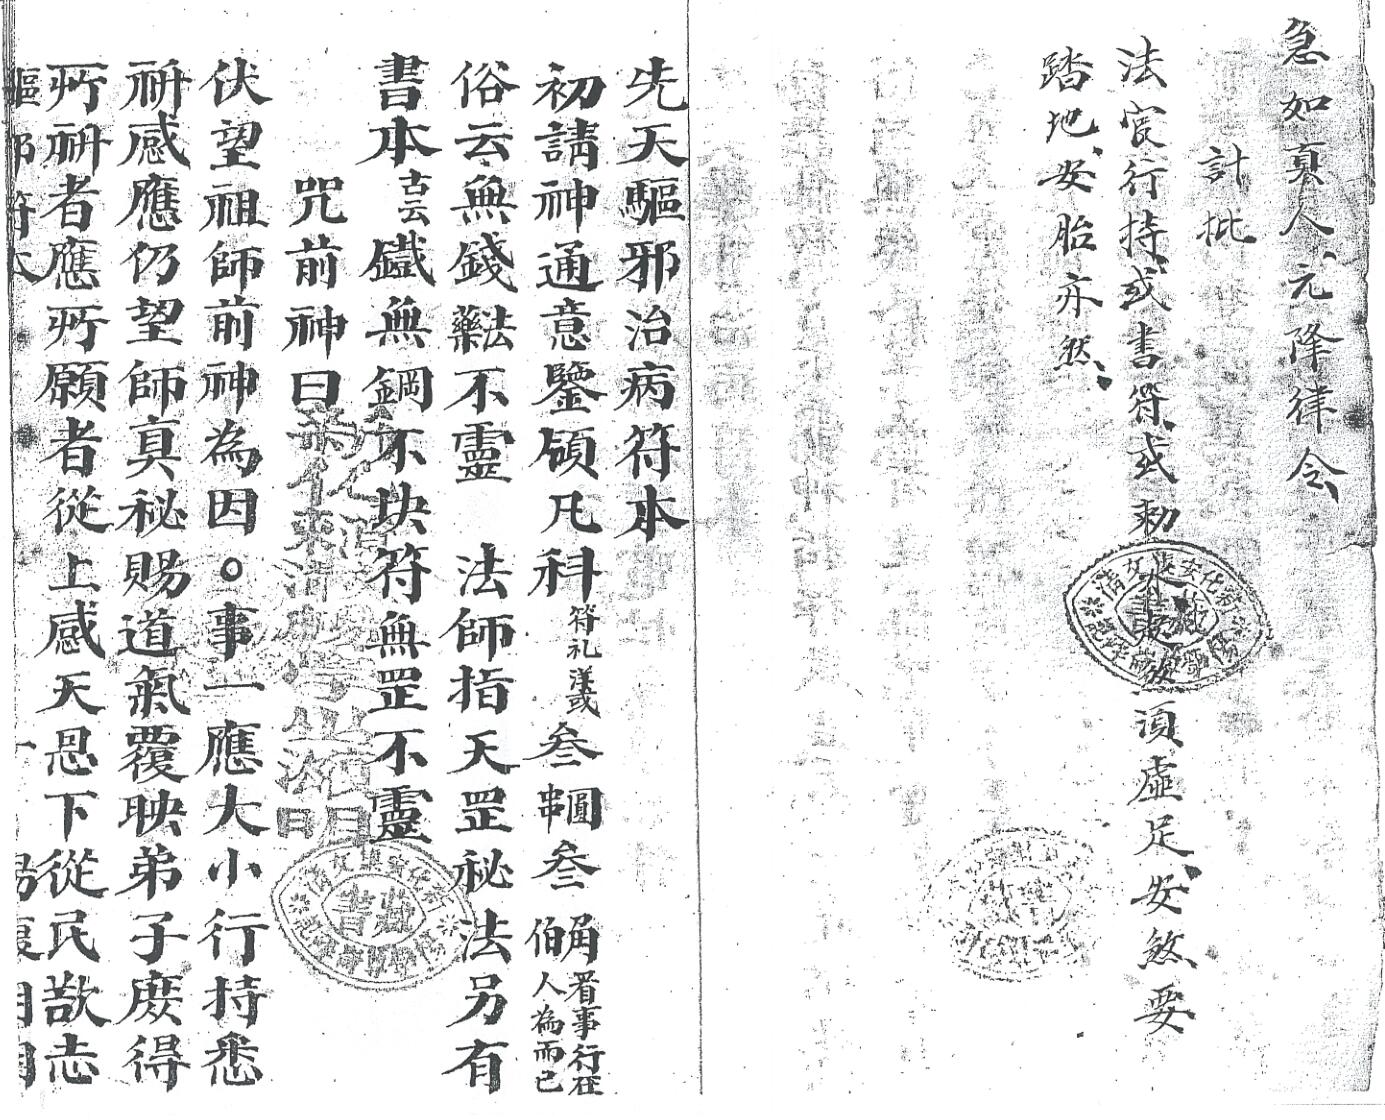 急如真人元降律令
計批
法官行持或書符或勅水書放須虛足安煞要
踏地安胎亦然
先天驅邪治病符本
初請神通意鑒領凡科符礼洋或叁串圓叁伯角看事行在人為而已
俗云無錢藥法不靈 法師指天罡秘法另有
書本古云鐵無鋼不块符無罡不靈
咒前神曰
伏望祖師前神為因。事一應大小行持悉
祈感應仍望師真秘賜道氣覆映弟子庶得
所祈者應所願者從上感天恩下從民歡志